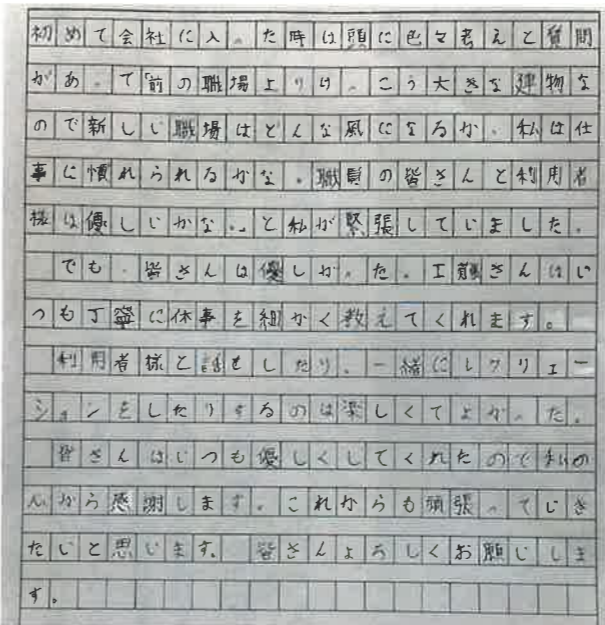 初めて会社に入った時は頭に色々考えと質問
があって「前の職場よりけっこう大きな建物な
ので新しい職場はどんな風になるか、私は仕
事に慣れられるかな。職員の皆さんと利用者
様は優しいかな。」と私が緊張していました。
でも、皆さんは優しかった。工藤さんはい
つも丁寧に仕事を細かく教えてくれます。
利用者様と話をしたり、一緒にレクリエー
ションをしたりするのは楽しくてよかった。
皆さんはいつも優しくしてくれたので私の
心から感謝します。これからも頑張っていき
たいと思います。皆さんよろしくお願いしま
す。